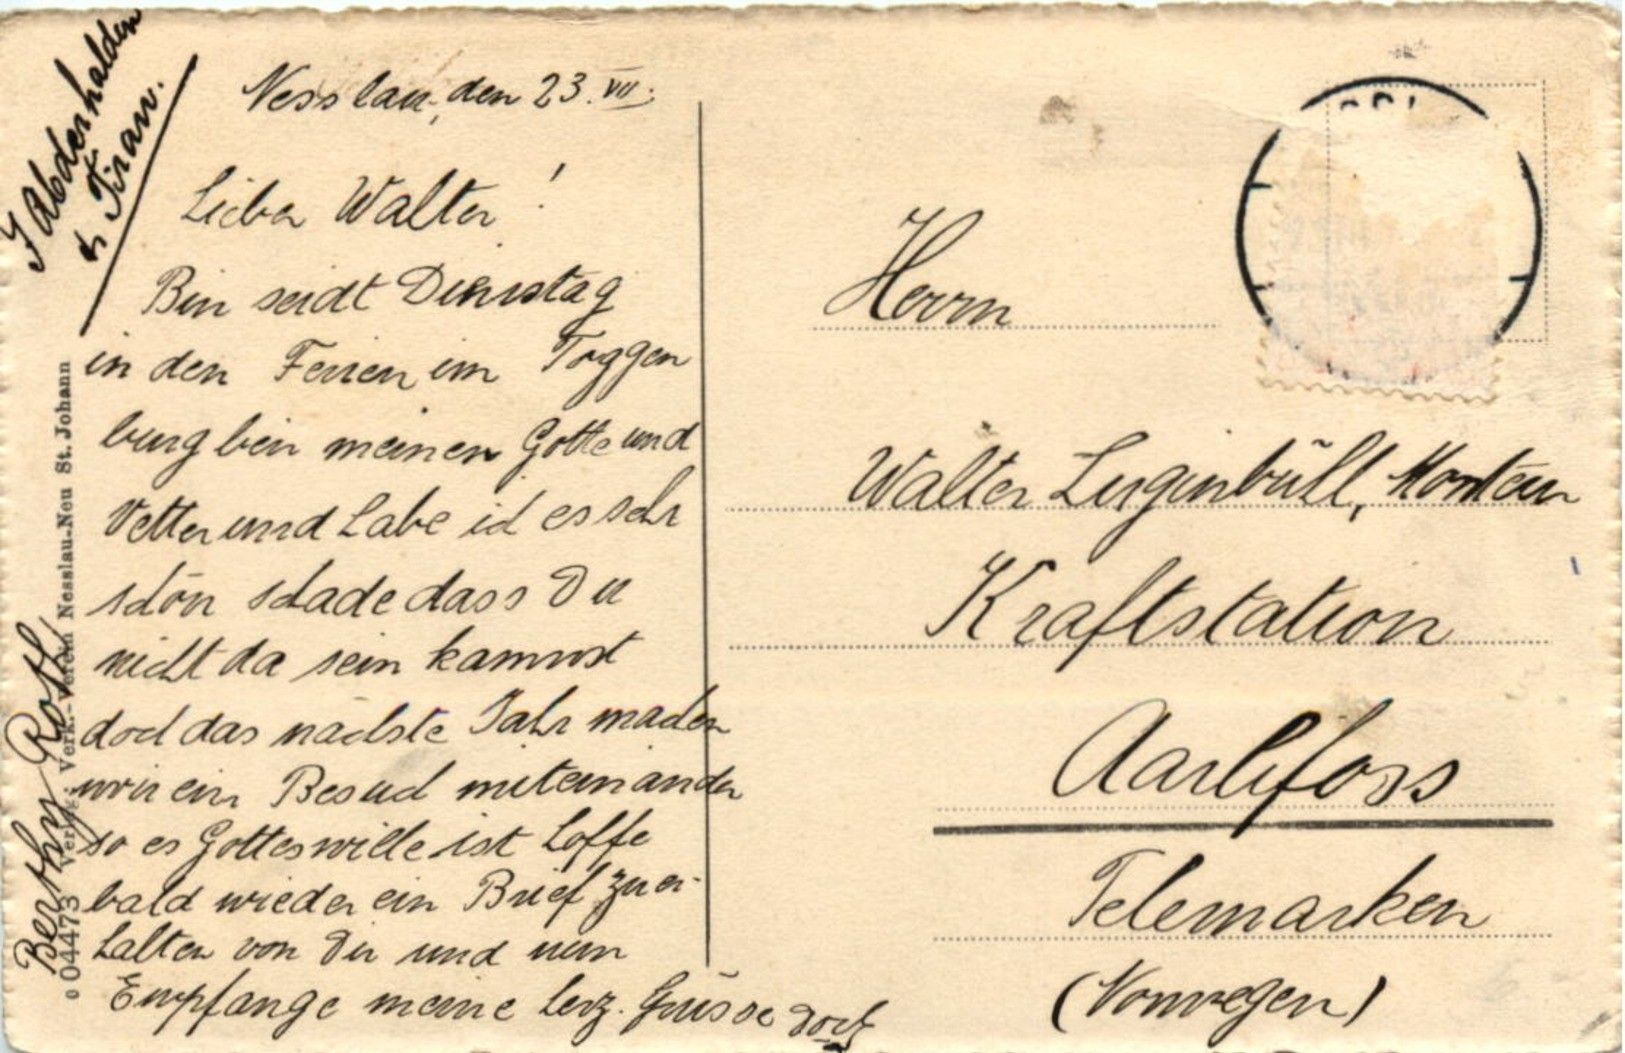 J Abderhalden
& Tiran.
Nesslau, den 23. VII.
Lieber Walter!
Bin seidt Dienstag
in den Ferien im Toggen
burg bein meinen Gotte und
Vetter und habe ich es sehr
schön schade dass Du
nicht da sein kannst
doch das nächste Jahr machen
wir ein Besuch miteinander
so es Gotteswille ist hoffe
bald wieder ein Brief zu er-
halten von Dir und nun
Empfange meine herz. Grüsse
Berthy Roth
004473 Verlag: Verk.-Verein Nesslau-Neu St. Johann
Herrn
Walter Luginbühl, Monteur
Kraftstation
Aarlifoss
Telemarken
(Norwegen)